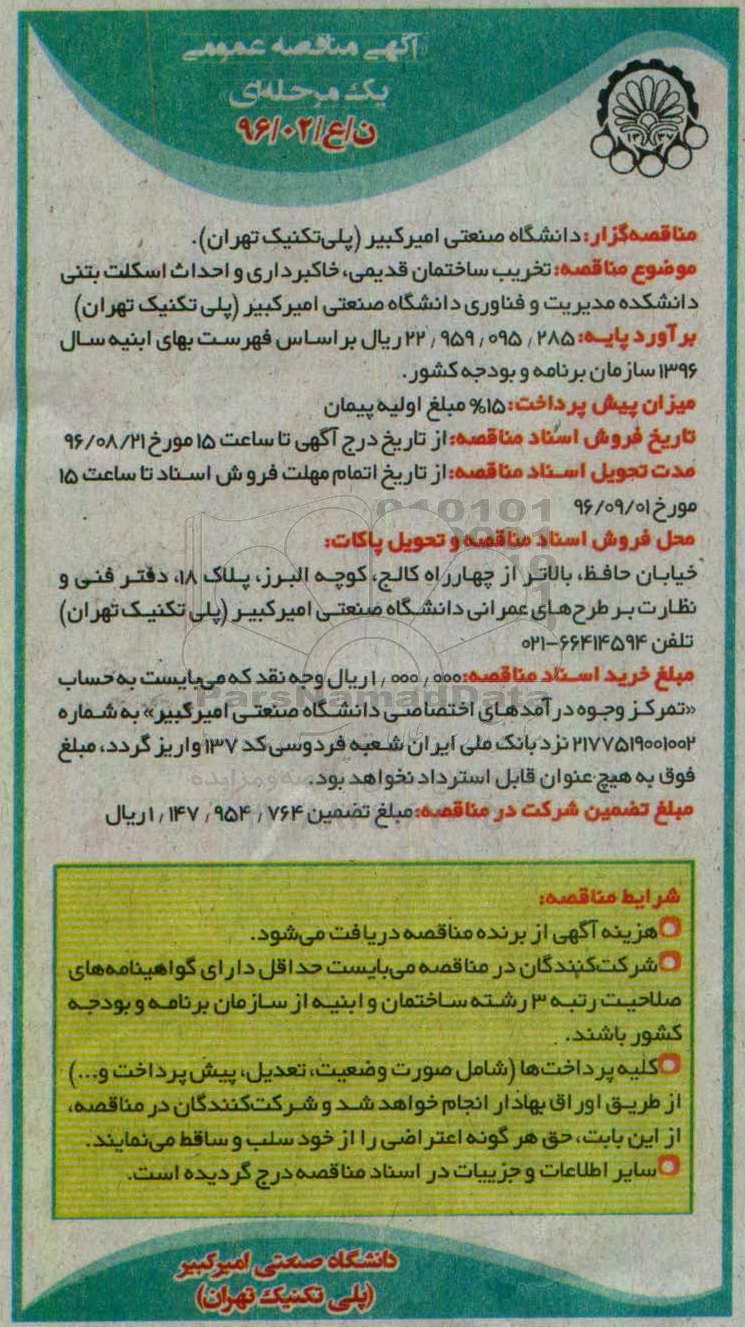 آگهی مناقصه عمومی
یک مرحله‌ای
ن/ع/۹۶/۰۲
۱۳۳۷
مناقصه‌گزار: دانشگاه صنعتی امیرکبیر (پلی‌تکنیک تهران).
موضوع مناقصه: تخریب ساختمان قدیمی، خاکبرداری و احداث اسکلت بتنی
دانشکده مدیریت و فناوری دانشگاه صنعتی امیرکبیر (پلی تکنیک تهران)
برآورد پایه: ۲۲,۹۵۹,۰۹۵,۲۸۵ ریال براساس فهرست بهای ابنیه سال
۱۳۹۶ سازمان برنامه و بودجه کشور.
میزان پیش پرداخت: ۱۵% مبلغ اولیه پیمان
تاریخ فروش اسناد مناقصه: از تاریخ درج آگهی تا ساعت ۱۵ مورخ ۹۶/۰۸/۲۱
مدت تحویل اسناد مناقصه: از تاریخ اتمام مهلت فروش اسناد تا ساعت ۱۵
مورخ ۹۶/۰۹/۰۱
محل فروش اسناد مناقصه و تحویل پاکات:
خیابان حافظ، بالاتر از چهارراه کالج، کوچه البرز، پلاک ۱۸، دفتر فنی و
نظارت بر طرح‌های عمرانی دانشگاه صنعتی امیرکبیر (پلی تکنیک تهران)
تلفن ۶۶۴۱۴۵۹۴-۰۲۱
مبلغ خرید اسناد مناقصه: ۱,۰۰۰,۰۰۰ ریال وجه نقد که می‌بایست به حساب
«تمرکز وجوه درآمدهای اختصاصی دانشگاه صنعتی امیرکبیر» به شماره
۲۱۷۷۵۱۹۰۰۱۰۰۲ نزد بانک ملی ایران شعبه فردوسی کد ۱۳۷ واریز گردد، مبلغ
فوق به هیچ عنوان قابل استرداد نخواهد بود.
مبلغ تضمین شرکت در مناقصه: مبلغ تضمین ۱,۱۴۷,۹۵۴,۷۶۴ ریال
ParsNamadData
شرایط مناقصه:
هزینه آگهی از برنده مناقصه دریافت می‌شود.
شرکت‌کنندگان در مناقصه می‌بایست حداقل دارای گواهینامه‌های
صلاحیت رتبه ۳ رشته ساختمان و ابنیه از سازمان برنامه و بودجه
کشور باشند.
کلیه پرداخت‌ها (شامل صورت وضعیت، تعدیل، پیش پرداخت و...)
از طریق اوراق بهادار انجام خواهد شد و شرکت‌کنندگان در مناقصه،
از این بابت، حق هر گونه اعتراضی را از خود سلب و ساقط می‌نمایند.
سایر اطلاعات و جزییات در اسناد مناقصه درج گردیده است.
دانشگاه صنعتی امیرکبیر
(پلی تکنیک تهران)